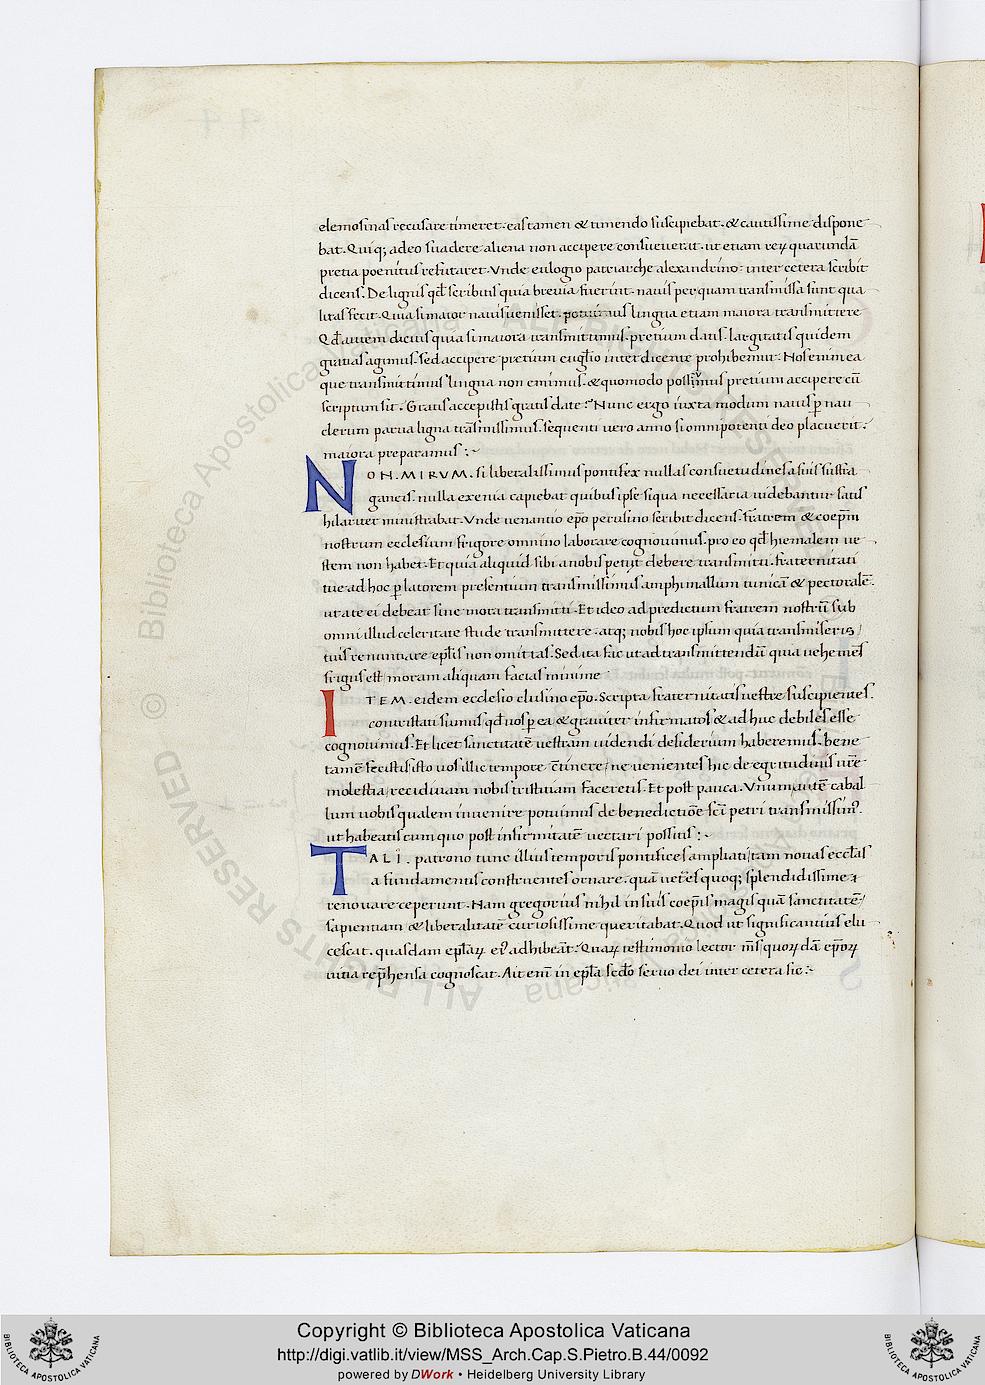 elemosinas recusare timeret. eas tamen & timendo suscipiebat. & cautissime dispone
bat. Quiq; adeo suadere aliena non accipere consueuerat. ut etiam reꝝ quarundā
pretia poenitus refutaret. Vnde eulogio patriarche alexandrino: inter cetera scribit
dicens. De lignis qđ scribitis quia breuia fuerint. nauis per quam transmissa sunt qua
litas fecit. Quia si maior nauis uenisset. potuimus lingua etiam maiora transmittere
Qđ autem dicitis quia si maiora transmittimus. pretium datis. largitatis quidem
gratias agimus. sed accipere pretium euglio interdicente prohibemur. Nos enim ea
que transmittimus lingna non emimus. & quomodo possumus pretium accipere cū
scriptum sit. Gratis accepistis gratis date: Nunc ergo iuxta modum nauis p̱ nau
clerum parua ligna trāsmissimus. sequenti uero anno si omnipotenti deo placuerit:
maiora preparamus:~
NON. MIRVM. si liberalissimus pontifex nullas consuetudines a suis suffra
ganeis. nulla exenia capiebat quibus ipse siqua necessaria uidebantur satis
hilariter ministrabat. Vnde uenantio ep̄o perusino scribit dicens. fratrem & coep̄m
nostrum ecclesium frigore omnino laborare cognouimus. pro eo qđ hiemalem ue
stem non habet. Et quia aliquid sibi a nobis petijt debere transmitti. fraternitati
tue ad hoc p̱ latorem presentium transmissimus amphimallum tunicā & pectoralē.
ut a te ei debeat sine mora transmitti. Et ideo ad predictum fratrem nostrū sub
omni illud celeritate stude transmittere. atq; nobis hoc ipsum quia transmiseris
tuis renuntiare ep̄lis non omittas. Sed ita fac ut ad transmittendū quia uehemes
frigus est moram aliquam facias minime
ITEM. eidem ecclesio clusino ep̄o. Scripta fraternitatis uestre suscipientes.
contristati sumus qđ uos p̱ ea & grauiter infirmatos & ad huc debiles esse
cognouimus. Et licet sanctitatē uestram uidendi desiderium haberemus. bene
tamē fecistis isto uos illic tempore c̄tinere. ne uenientes hic de egritudinis ur̄e
molestia. recidiuam nobis tristitiam faceretis. Et post pauca. Vnum autē cabal
lum uobis qualem inuenire potuimus de benedictiōe sc̄i petri transmissim9.
ut habeatis cum quo post infirmitatē uectari possitis:~
TALI. patrono tunc illius temporis pontifices ampliati. tam nouas eccl̄as
a fundamentis construentes ornare. quā uet̄es quoq; splendidissime
renouare ceperunt. Nam gregorius nihil in suis coep̄is magis quā sanctitatē
sapientiam & liberalitatē curiosissime queritabat. Quod ut significantius elu
cescat. quasdam ep̄laꝝ ei9 adhibeāt. Quaꝝ testimonio lector m̄s quoꝝdā ep̄oꝝ
uitia rep̄hensa cognoscat. Ait eni in ep̄la sc̄do seruo dei inter cetera sic:~
© Biblioteca Apostolica Vaticana ALL RIGHTS RESERVED
Copyright © Biblioteca Apostolica Vaticana
http://digi.vatlib.it/view/MSS_Arch.Cap.S.Pietro.B.44/0092
powered by DWork • Heidelberg University Library
BIBLIOTECA APOSTOLICA VATICANA
BIBLIOTECA APOSTOLICA VATICANA